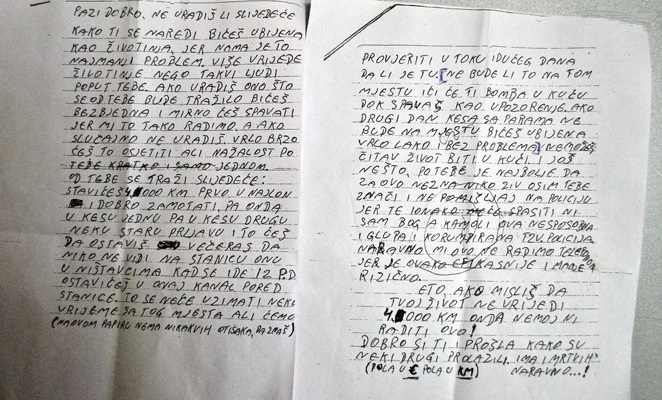 PAZI DOBRO. NE URADIŠ LI SLIJEDEĆE
KAKO TI SE NAREDI BIĆEŠ UBIJENA
KAO ŽIVOTINJA. JER NAMA JE TO
NAJMANJI PROBLEM. VIŠE VRIJEDE
ŽIVOTINJE NEGO TAKVI LJUDI
POPUT TEBE. AKO URADIŠ ONO ŠTO
SE OD TEBE BUDE TRAŽILO BIĆEŠ
BEZBJEDNA I MIRNO ĆEŠ SPAVATI
JER MI TO TAKO RADIMO. A AKO
SLUČAJNO NE URADIŠ, VRLO BRZO
ĆEŠ TO OSJETITI ALI NAŽALOST PO
TEBE KRATKO I SAMO JEDNOM.
OD TEBE SE TRAŽI SLIJEDEĆE:
STAVIĆEŠ 4.000 KM PRVO U NAJLON
I DOBRO ZAMOTATI, PA ONDA
U KESU JEDNU PA U KESU DRUGU
NEKU STARU PRLJAVU I TO ĆEŠ
DA OSTAVIŠ VEČERAS DA
NIKO NE VIDI NA STANICU ONU
U NIŠTAVCIMA KAD SE IDE IZ P.D
OSTAVIĆEŠ U ONAJ KANAL PORED
STANICE. TO SE NEĆE UZIMATI NEKO
VRIJEME SA TOG MJESTA ALI ĆEMO
(NA OVOM PAPIRU NEMA NIKAKVIH OTISAKA, DA ZNAŠ)
PROVJERITI U TOKU IDUĆEG DANA
DA LI JE TU. NE BUDE LI TO NA TOM
MJESTU IĆI ĆE TI BOMBA U KUĆU
DOK SPAVAŠ KAO UPOZORENJE. AKO
DRUGI DAN KESA SA PARAMA NE
BUDE NA MJESTU BIĆEŠ UBIJENA
VRLO LAKO I BEZ PROBLEMA. NEMOŽEŠ
ČITAV ŽIVOT BITI U KUĆI. I JOŠ
NEŠTO, PO TEBE JE NAJBOLJE DA
ZA OVO NEZNA NIKO ŽIV OSIM TEBE
ZNAČI I NE POMIŠLJAJ NA POLICIJU
JER TE IONAKO NEĆE SPASITI NI
SAM BOG A KAMOLI OVA NESPOSOBNA
I GLUPA I KORUMPIRANA TZV. POLICIJA
NARAVNO MI OVO NE RADIMO
JER JE OVAKO EFIKASNIJE I MANJE
RIZIČNO.
ETO, AKO MISLIŠ DA
TVOJ ŽIVOT NE VRIJEDI
4.000 KM ONDA NEMOJ NI
RADITI OVO!
DOBRO SI TI I PROŠLA KAKO SU
NEKI DRUGI PROLAZILI. IMA I MRTVIH
(POLA U € POLA U KM) NARAVNO...!